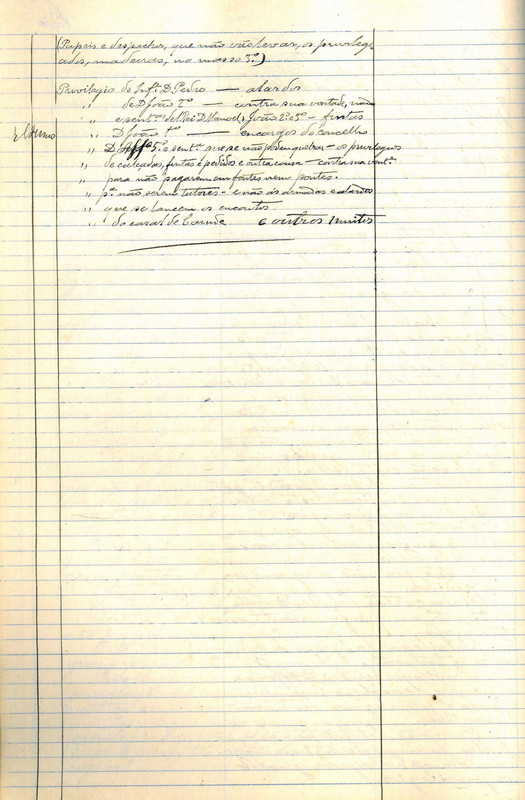 (Papeis e despachos, que não vão levar, os privilegi
ados, madeiras, no masso 5º.)
Privilegio do Infte. D. Pedro — alardos
" de D. João 2º — contra sua vontade, não
" e sentças. del Rei D. Manoel, João 2º e 3º — fintas
" D. João 1º — encargos do concelho
" D. Affº 5º e sentça. que se não quebrar — os privilegios
" de calçadas, fintas e pedidos e outra cousa — contra sua vontde.
" para não pagarem em fontes nem pontes.
" pª. não serem tutores — e não ás armadas e alardos
" que se lancem os encontos
" do casal de Carnide e outros muitos